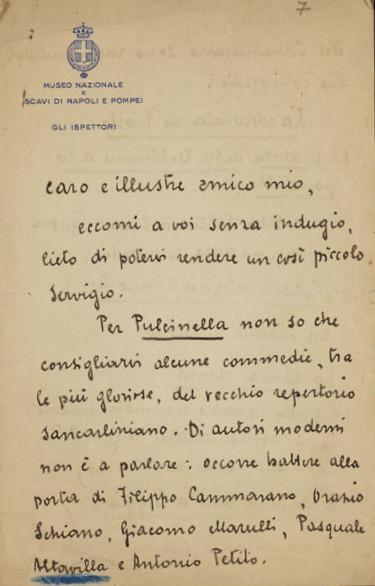 7
MUSEO NAZIONALE
E
SCAVI DI NAPOLI E POMPEI
GLI ISPETTORI
caro e illustre amico mio,
eccomi a voi senza indugio,
lieto di potervi rendere un così piccolo
servigio.
Per Pulcinella non so che
consigliarvi alcune commedie, tra
le più gloriose, del vecchio repertorio
sancarliniano. Di autori moderni
non è a parlare: occorre battere alla
porta di Filippo Cammarano, Orazio
Schiano, Giacomo Marulli, Pasquale
Altavilla e Antonio Petito.